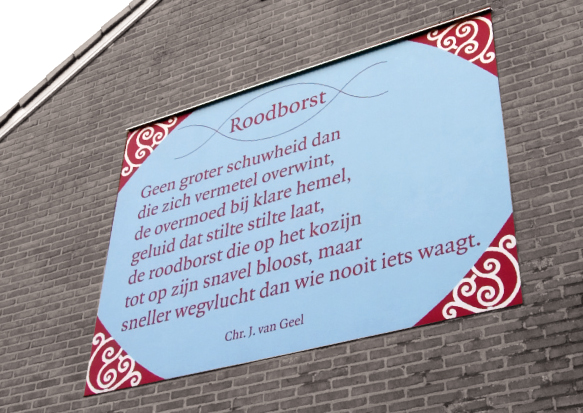 Roodborst
Geen groter schuwheid dan
die zich vermetel overwint,
de overmoed bij klare hemel,
geluid dat stilte stilte laat,
de roodborst die op het kozijn
tot op zijn snavel bloost, maar
sneller wegvlucht dan wie nooit iets waagt.
Chr. J. van Geel